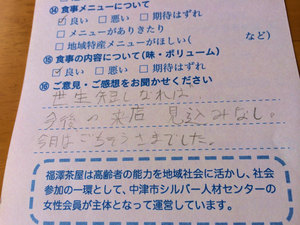 ⑭ 食事メニューについて
☑ 良い □ 悪い □ 期待はずれ
□ メニューがありきたり
□ 地域特産メニューがほしい( など)
⑮ 食事の内容について(味・ボリューム)
☑ 良い □ 悪い □ 期待はずれ
⑯ ご意見・ご感想をお聞かせください
世生短しなれば
今後の来店 見込みなし。
今日はごちそうさまでした。
福澤茶屋は高齢者の能力を地域社会に活かし、社会
参加の一環として、中津市シルバー人材センターの
女性会員が主体となって運営しています。